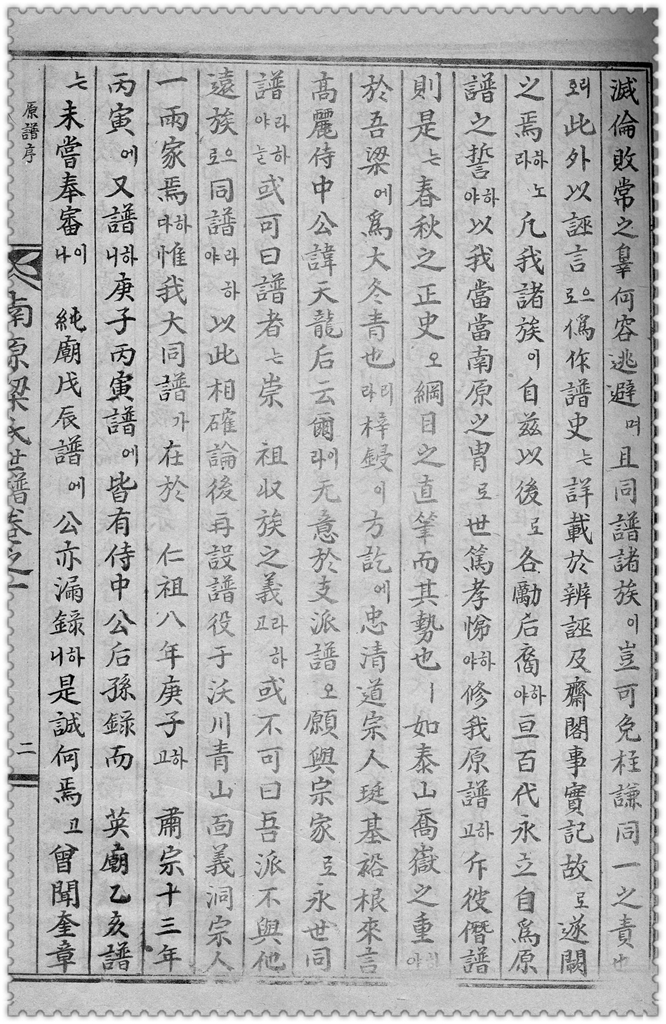 滅倫敗常之辠何容逃避며且同譜諸族이豈可免枉謙同一之責也
로리此外以誣言로으僞作譜史는詳載於辨誣及齋閣事實記故로遂闕
之焉라하노凡我諸族이自茲以後로各勵后裔야하亘百代永立自爲原
譜之誓야하以我當當南原之冑로世篤孝悌야하修我原譜고하斥彼僭譜
則是는春秋之正史오綱目之直筆而其勢也ㅣ如泰山喬嶽之重야하
於吾梁에爲大冬靑也라리梓鋟이方訖에忠清道宗人珽基裕根來言
高麗侍中公諱天龍后云爾라이无意於支派譜오願與宗家로永世同
譜야라늘하或可曰譜者는崇 祖収族之義고라하或不可曰吾派不與他
遠族로으同譜야라하以此相確論後再設譜役于沃川青山面義洞宗人
一兩家焉다하惟我大同譜가在於 仁祖八年庚子고하 肅宗十三年
丙寅에又譜니하庚子丙寅譜에皆有侍中公后孫錄而 英廟乙亥譜
는未嘗奉審나이 純廟戊辰譜에公亦漏錄니하是誠何焉고曾聞奎章
原譜序
南原梁氏世譜卷之一
二